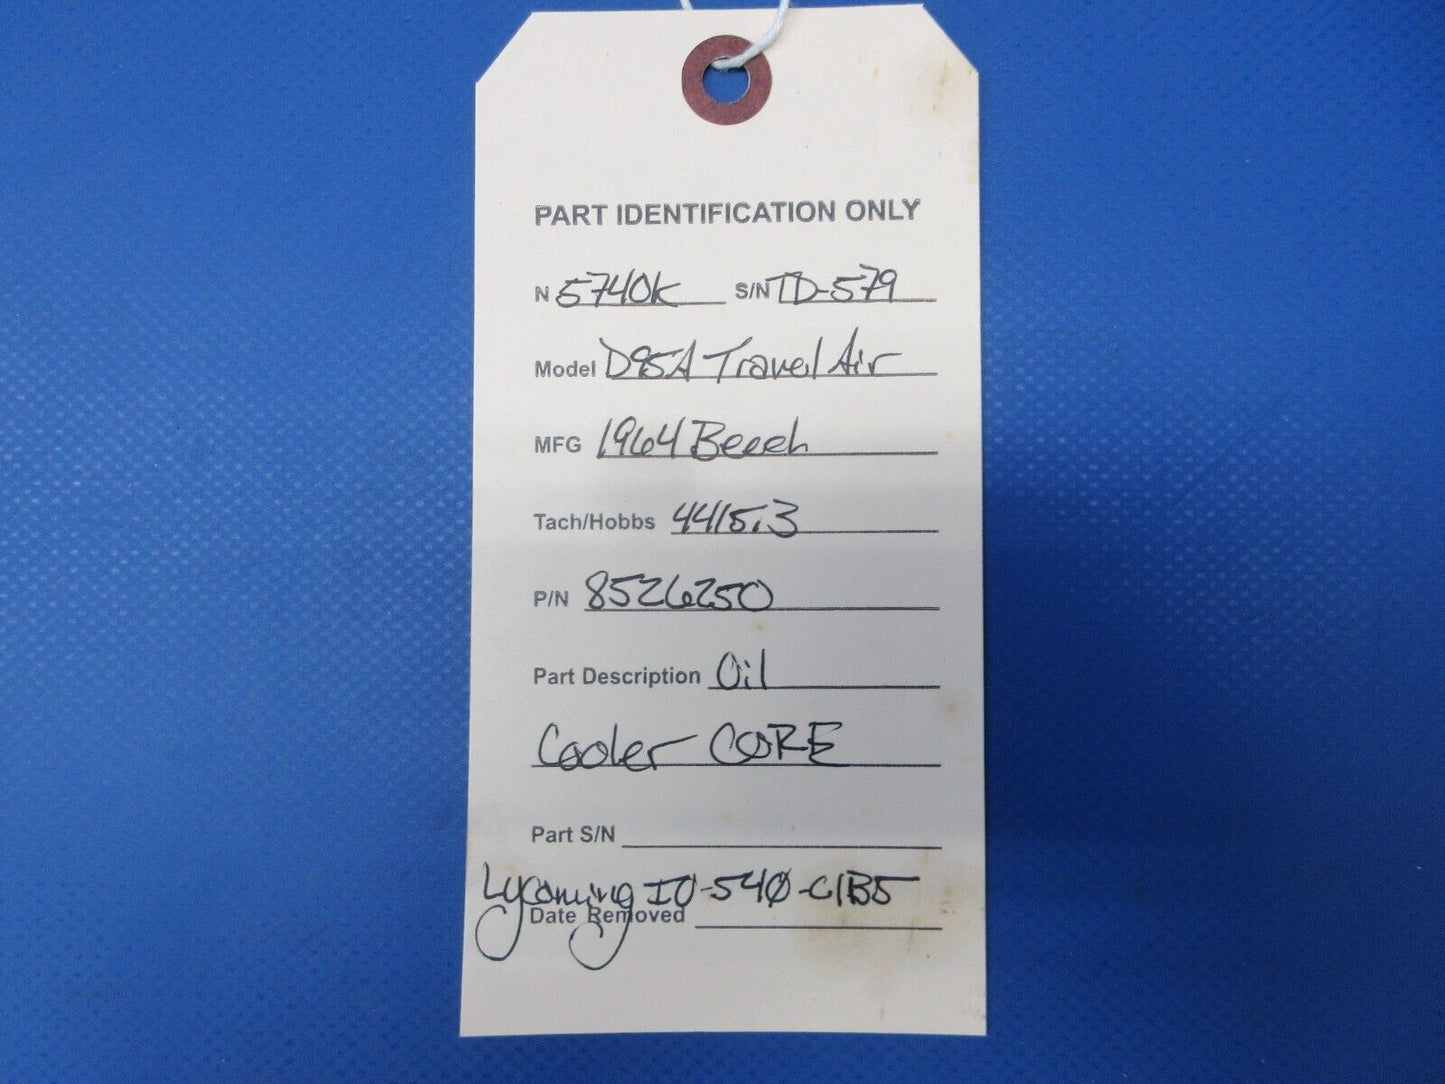 PART IDENTIFICATION ONLY
N 5740K S/N TD-579
Model D95A Travel Air
MFG 1964 Beech
Tach/Hobbs 4415.3
P/N 8526250
Part Description Oil
Cooler CORE
Part S/N
Lycoming IO-540-C1B5
Date Removed